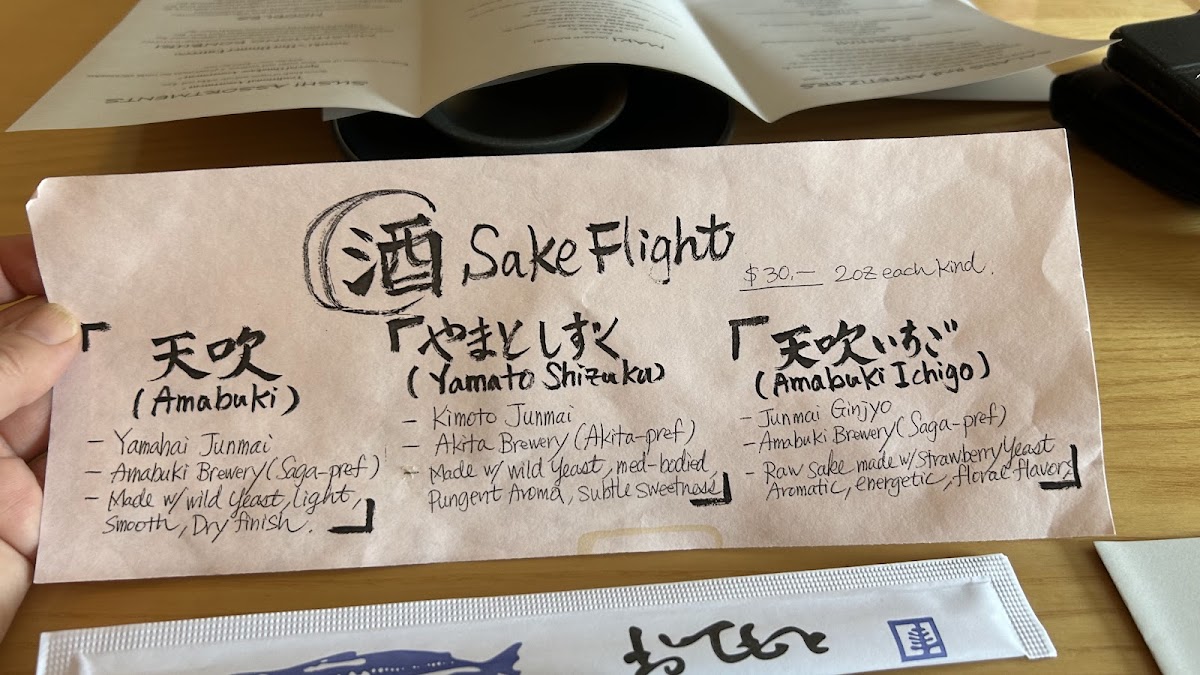 SUSHI ASSORTMENTS
MAKI
酒 Sake Flight
$30.— 2oz each kind.
「天吹
(Amabuki)
- Yamahai Junmai
- Amabuki Brewery (Saga-pref)
- Made w/ wild yeast, light,
Smooth, Dry finish.」
「やまとしずく
(Yamato Shizuku)
- Kimoto Junmai
- Akita Brewery (Akita-pref)
- Made w/ wild yeast, med-bodied,
Pungent Aroma, subtle sweetness」
「天吹いちご
(Amabuki Ichigo)
- Junmai Ginjyo
- Amabuki Brewery (Saga-pref)
- Raw sake made w/ strawberry yeast
Aromatic, energetic, floral flavors」
おてもと